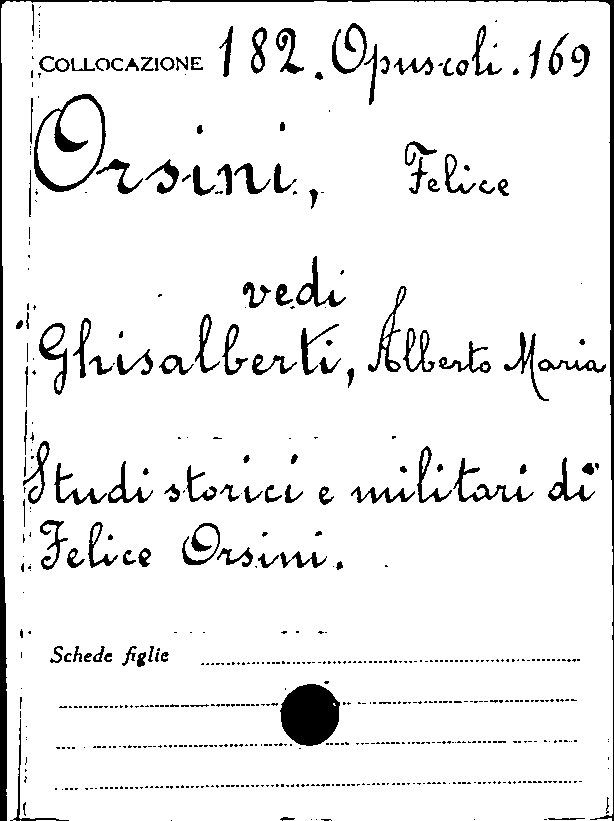 COLLOCAZIONE 182. Opuscoli. 169
Orsini, Felice
vedi
Ghisalberti, Alberto Maria
Studi storici e militari di
Felice Orsini.
Schede figlie